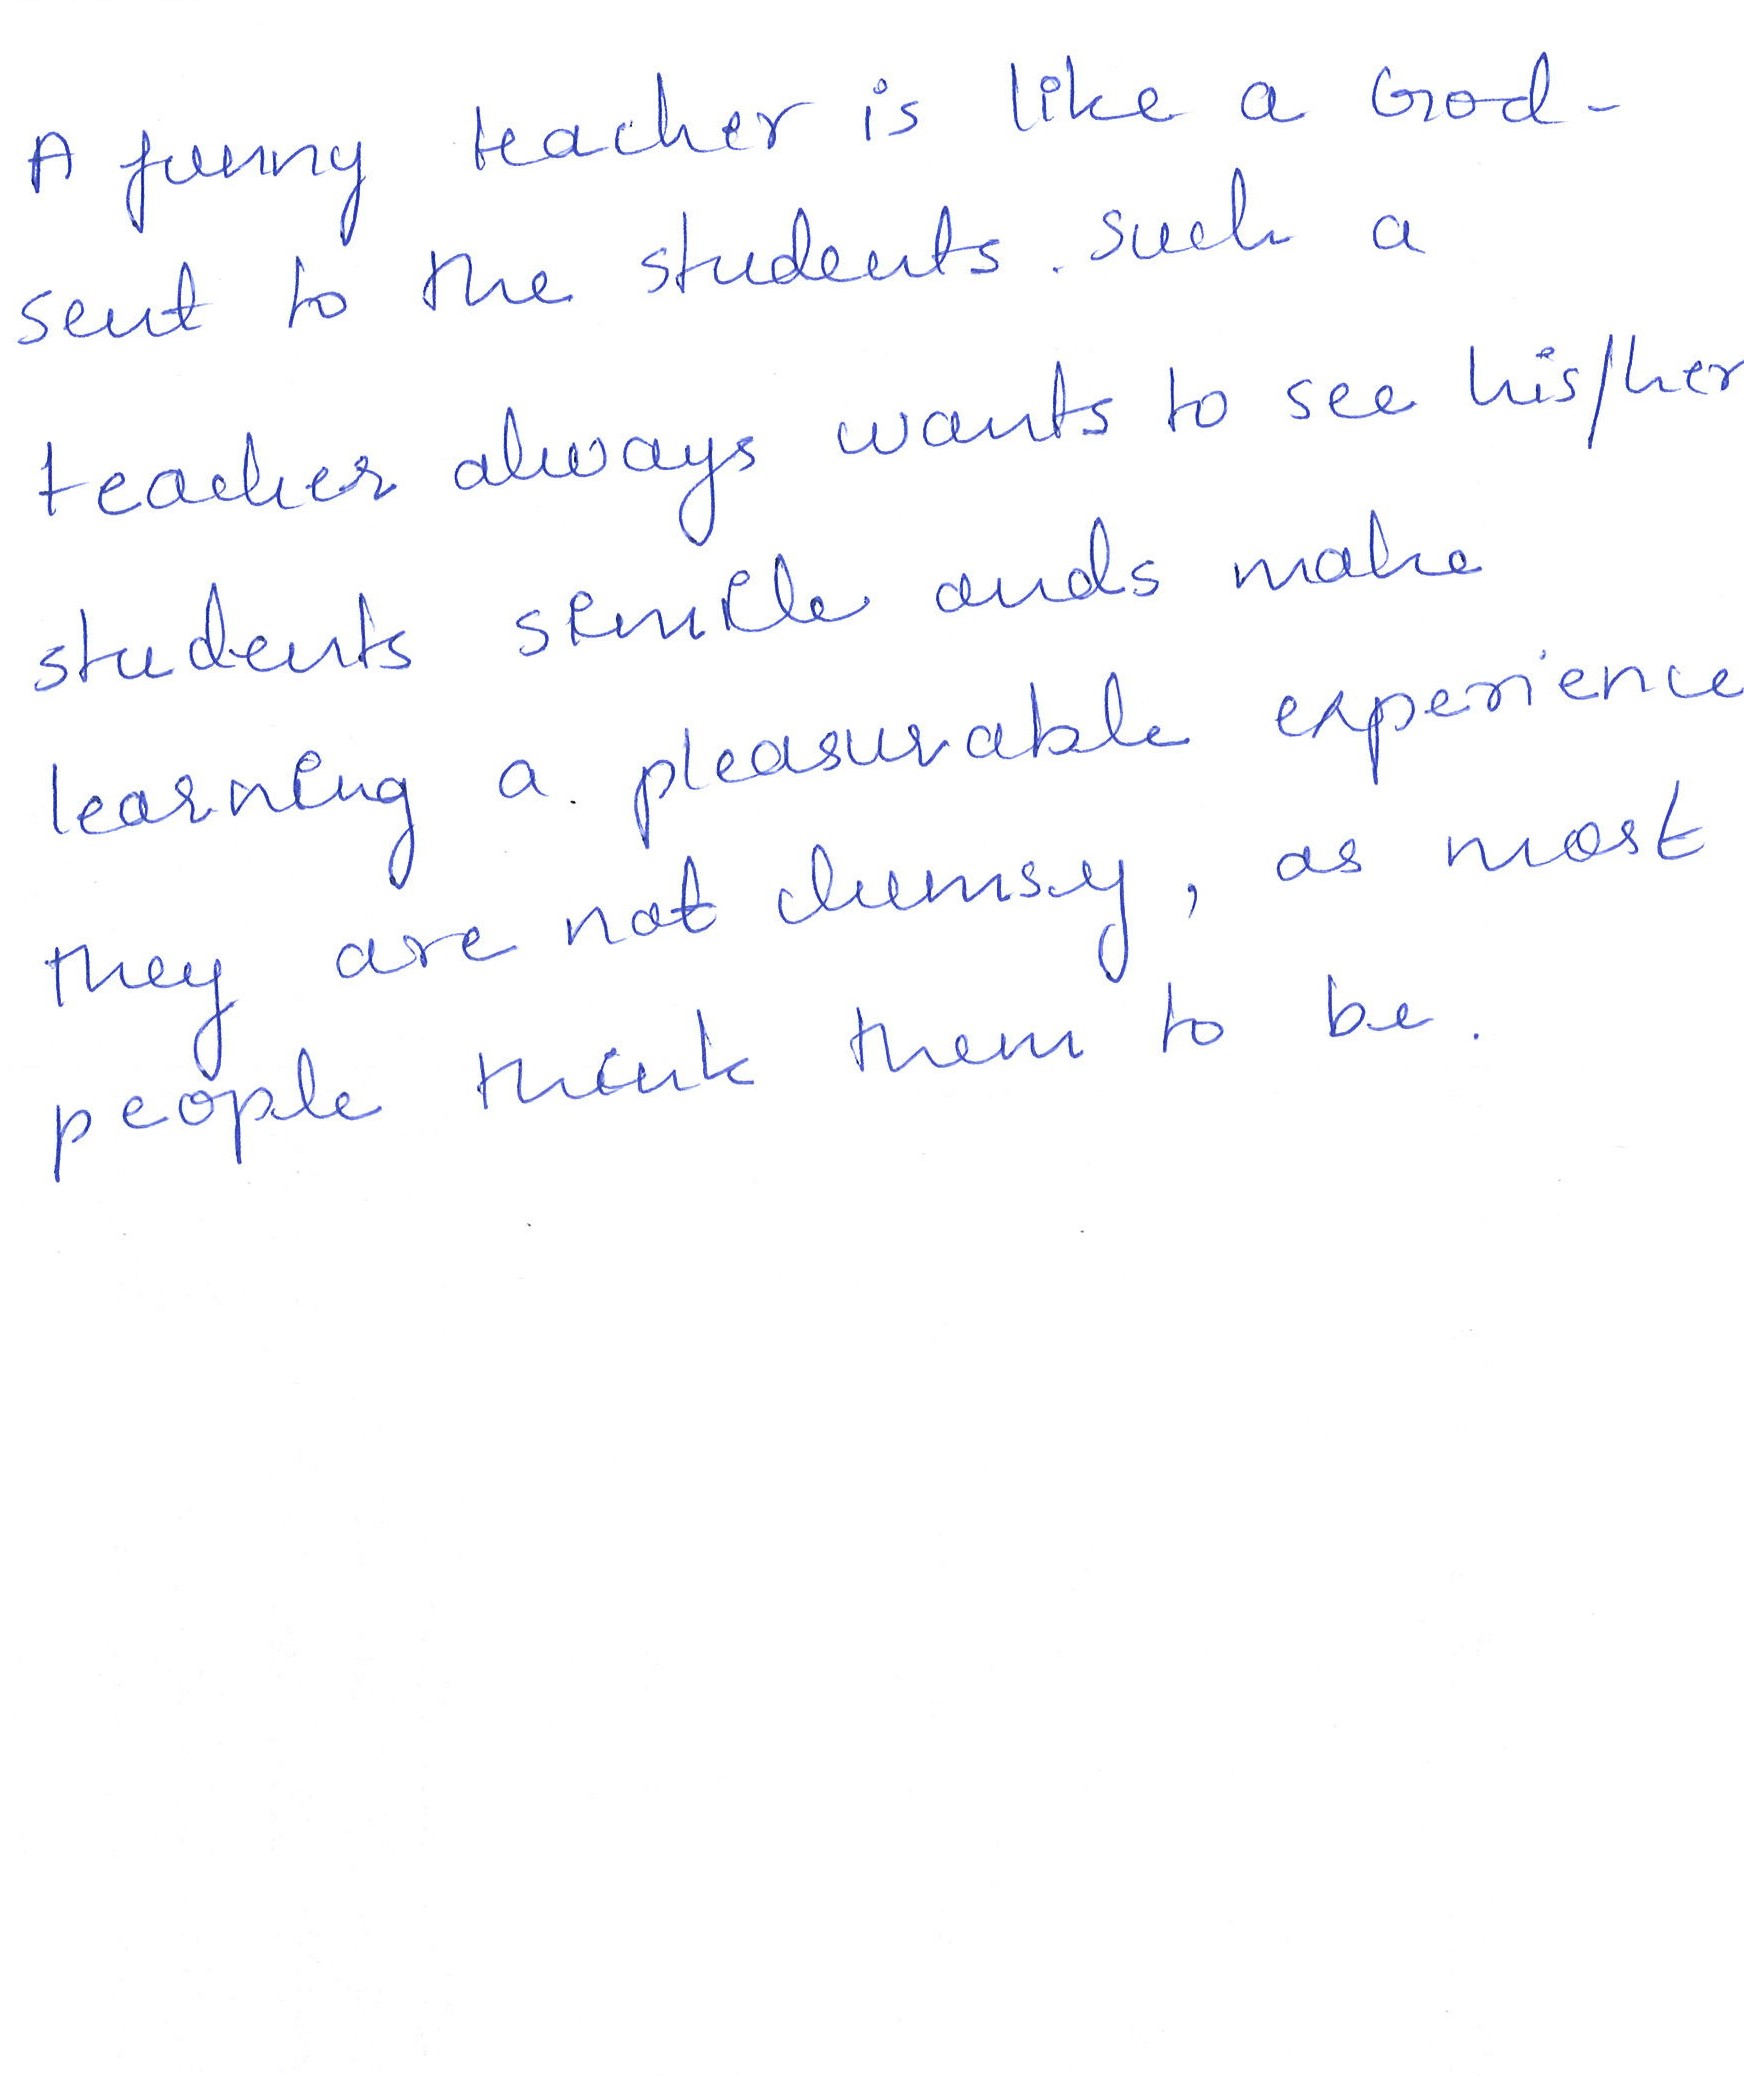 A funny teacher is like a God-
sent to the students. such a
teacher always wants to see his/her
students simile ands make
learning a pleasurable experience
they are not clumsy, as most
people think them to be.